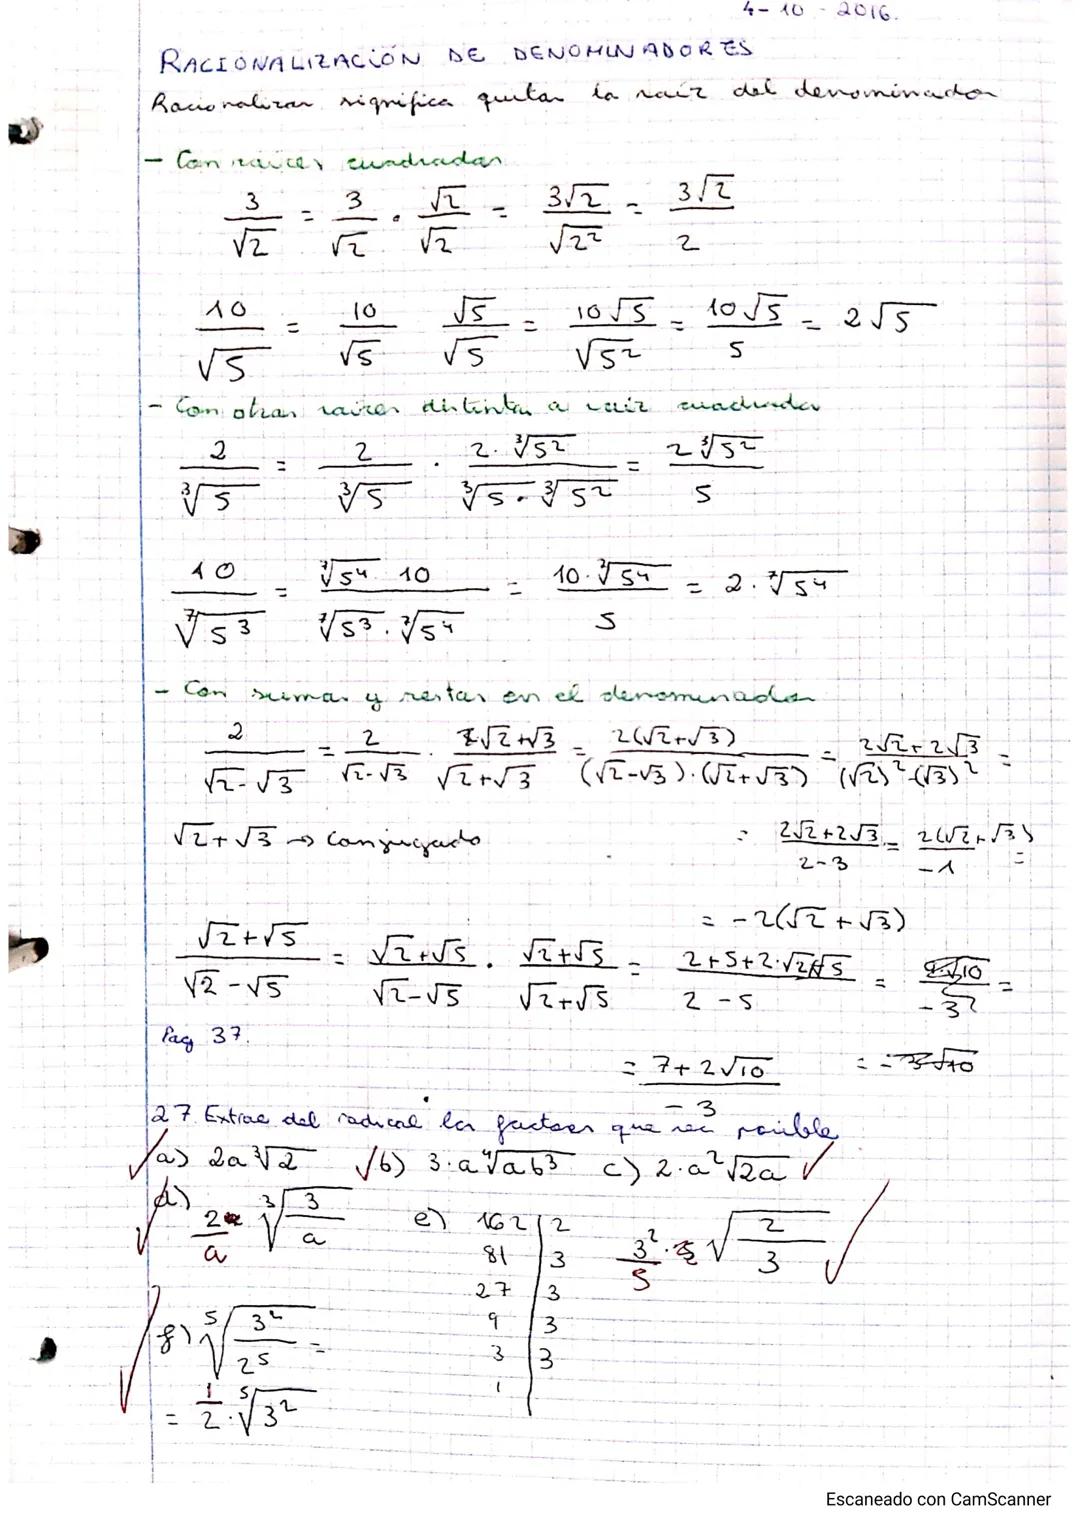 4-10-2016.
RACIONALIZACIÓN DE DENOMINADORES
Racionalizar significa quitar la raíz del denominador
- Con raíces cuadradas
3/√2 = 3/√2 · √2/√2 = 3√2/√2² = 3√2/2
10/√5 = 10/√5 √5/√5 = 10√5/√5² = 10√5/5 = 2√5
- Con otras raíces distinta a raíz cuadrada
2/∛5 = 2/∛5 · 2·∛5²/∛5·∛5² = 2∛5²/5
10/⁷√5³ = ⁷√5⁴ 10/⁷√5³·⁷√5⁴ = 10·⁷√5⁴/5 = 2·⁷√5⁴
- Con sumas y restas en el denominador
2/√2-√3 = 2/√2-√3 · √2+√3/√2+√3 = 2(√2+√3)/(√2-√3)·(√2+√3) = 2√2+2√3/(√2)²-(√3)² =
√2+√3 → conjugado
= 2√2+2√3/2-3 = 2(√2+√3)/-1 =
= -2(√2+√3)
√2+√5/√2-√5 = √2+√5/√2-√5 · √2+√5/√2+√5 = 2+5+2·√2√5/2-5 =
Pag 37.
= 7+2√10/-3
27 Extrae del radical los factores que sea posible
a) 2a∛2 b) 3·a⁴√ab³ c) 2·a²√2a
d) 2/a ∛3/a e) 162 | 2 3²/5 √2/3
81 | 3
27 | 3
9 | 3
3 | 3
1
f) ⁵√3²/2⁵ =
= 1/2·⁵√3²
Escaneado con CamScanner